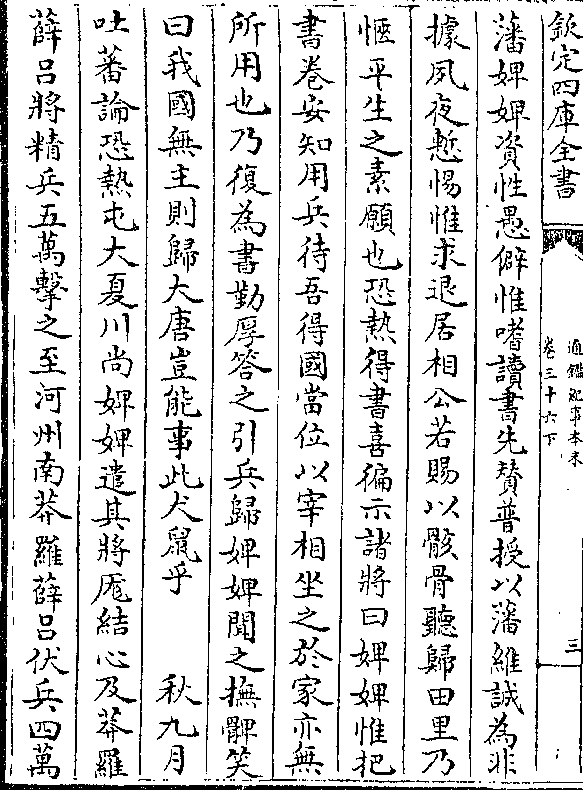 欽定四庫全書
通鑑紀事本末
卷三十六下
三
藩婢婢資性愚僻惟嗜讀書先贊普授以藩維誠為非
據夙夜慙惕惟求退居相公若賜以骸骨聽歸田里乃
愜平生之素願也恐熱得書喜徧示諸將曰婢婢惟把
書卷安知用兵待吾得國當位以宰相坐之於家亦無
所用也乃復為書勤厚答之引兵歸婢婢聞之撫髀笑
曰我國無主則歸大唐豈能事此犬鼠乎　秋九月
吐蕃論恐熱屯大夏川尚婢婢遣其將厖結心及莽羅
薛呂將精兵五萬擊之至河州南莽羅薛呂伏兵四萬